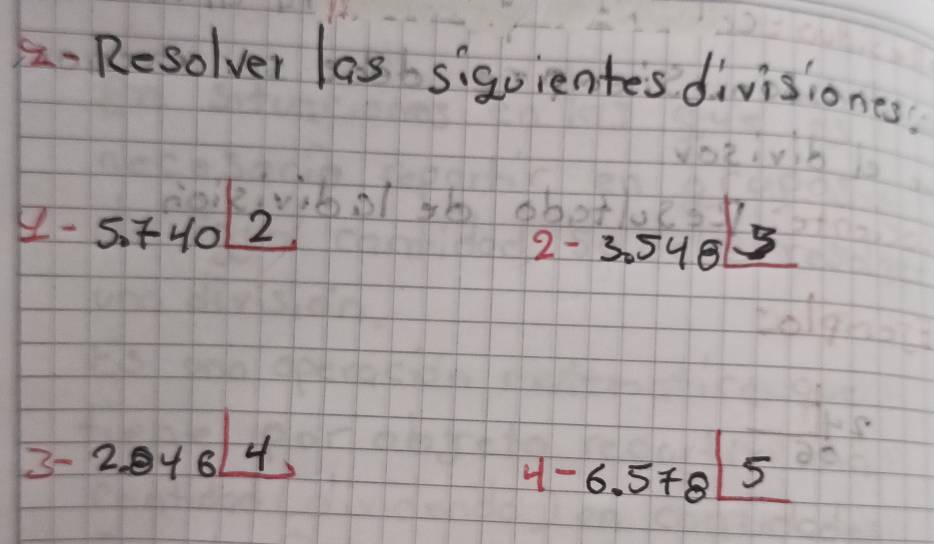 2- Resolver las siguientes divisiones:
1- 5.740 2
2- 3.548 3
3- 2.846 4
4- 6.578 5